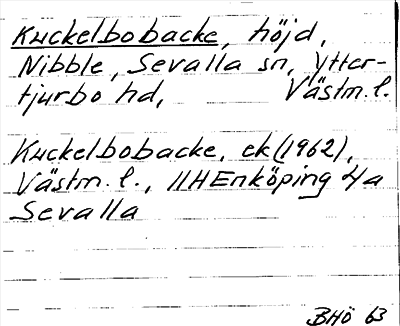 Kuckelbobacke, höjd,
Nibble, Sevalla sn, Ytter-
tjurbo hd, Västm. l.
Kuckelbobacke, ek (1962),
Västm. l., 11H Enköping 4a
Sevalla
BHö 63